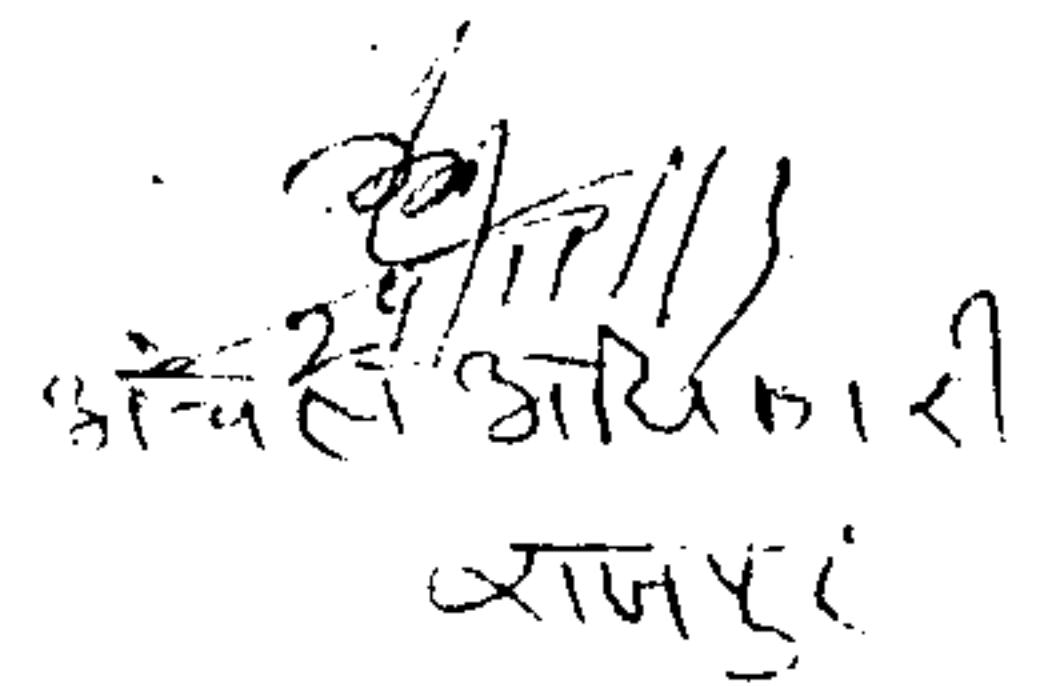 अंचल अधिकारी
राजपुर